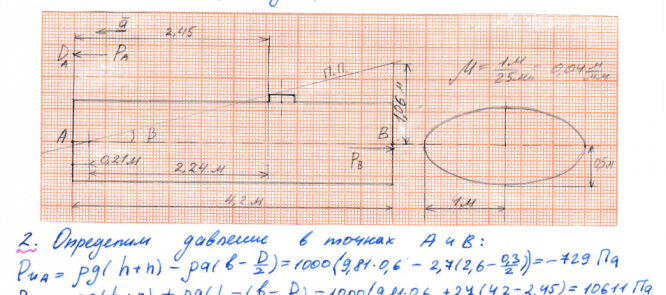 a
2,45
D_A P_A
П.П.
M = 1м/25мм = 0,04 м/мм
1,06м
A B B
0,21м
P_B
2,24 м
0,5м
1м
4,2 м
2. Определим давление в точках A и B:
P_uA = ρg(h+n) - ρa(b - D/2) = 1000(9,81·0,6 - 2,7(2,6 - 0,3/2)) = -729 Па
= 1000(9,81·0,6 + 2,7(4,2 - 2,45) = 10611 Па